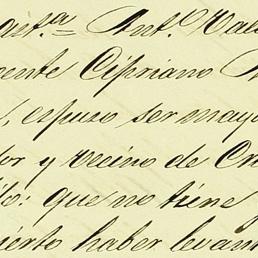 ant.ª Ant.º Val
ente Cipriano
, espuso ser mayo
or y vecino de Cr
to: que no tiene
ierto haber levan